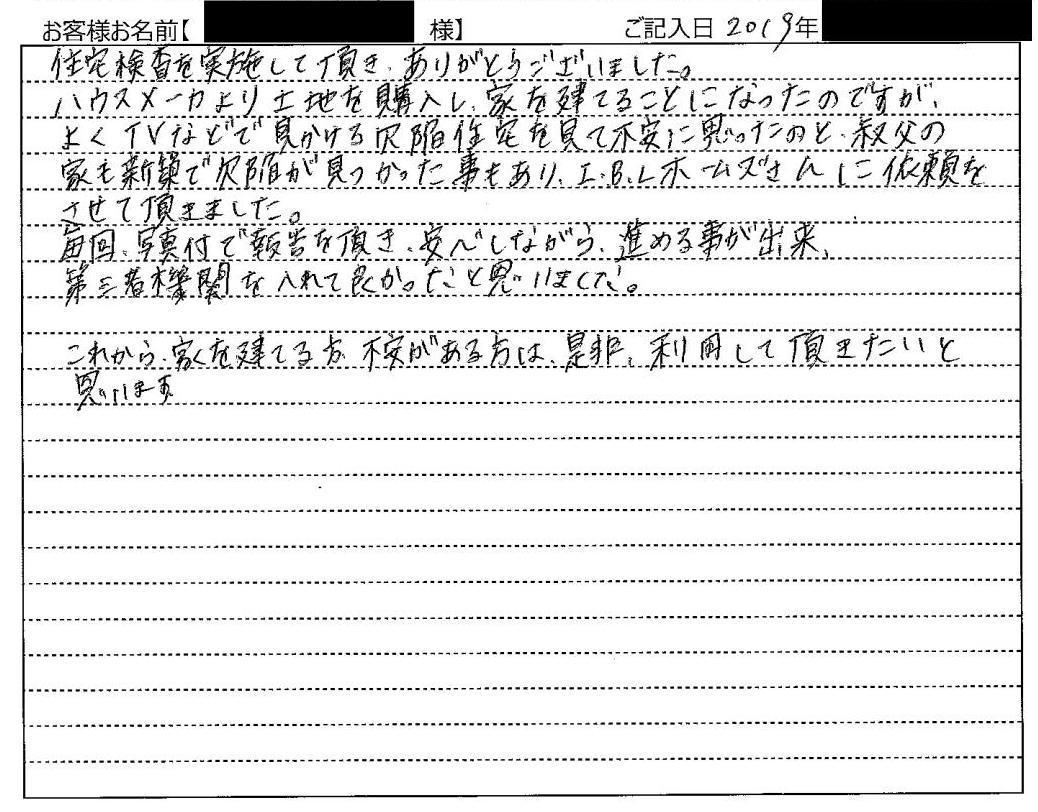 お客様お名前【 様】 ご記入日 2019年
住宅検査を実施して頂き、ありがとうございました。
ハウスメーカより土地を購入し、家を建てることになったのですが、
よくTVなどで見かける欠陥住宅を見て不安に思ったのと、叔父の
家も新築で欠陥が見つかった事もあり、E.B.Lホームズさんに依頼を
させて頂きました。
毎回、写真付で報告を頂き、安心しながら、進める事が出来、
第三者機関を入れて良かったと思いました。
これから、家を建てる方、不安がある方は、是非、利用して頂きたいと
思います